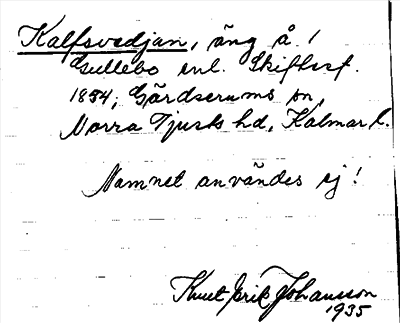 Kalfsvedjan, äng å 1
Gullebo enl. Skiftesf.
1854, Gärdserums sn,
Norra Tjusts hd, Kalmar l.
Namnet användes ej!
Knut Erik Johansson
1935